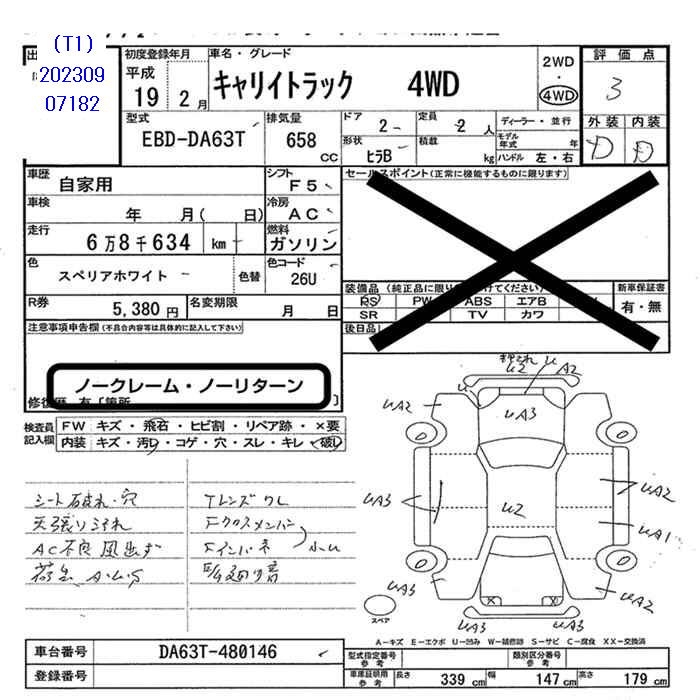 (T1)
202309
07182
初度登録年月
平成
19 2月
車名・グレード
キャリイトラック 4WD
2WD
・
4WD
評価点
3
外装 内装
D D
型式
EBD-DA63T
排気量
658
CC
ドア
2
定員
2 人
形状
ヒラB
積載
kg
ディーラー・並行
モデル
年式 年
ハンドル 左・右
車歴
自家用
シフト
F5
車検
年 月( 日)
冷房
AC
走行
6万8千634 km
燃料
ガソリン
色
スペリアホワイト
色替
色コード
26U
R券
5,380円
名変期限
月 日
セールスポイント(正常に機能するものに限ります)
装備品
PS PW ABS エアB
SR TV カワ
後日品
新車保証書
有・無
注意事項申告欄(不具合内容等は具体的に記入して下さい)
ノークレーム・ノーリターン
検査員
記入欄
FW キズ・飛石・ヒビ割・リペア跡・×要
内装 キズ・汚れ・コゲ・穴・スレ・キレ・破れ
シート破れ・穴
天張り汚れ
AC不良 風出ず
荷台 A・U・S
Fレンズ ワレ
Fクロスメンバー
Fインパネ
小U
U2
U
A2
U
UA2
UA3
UA3
U2
UA2
UA1
UA3
UA2
UA3
UA3
スペア
A−キズ E−エクボ U−凹み W−補修跡 S−サビ C−腐食 XX−交換済
車台番号
DA63T-480146
登録番号
型式指定番号
参考
類別区分番号
参考
車庫証明用
参考
長さ 339 cm
幅 147 cm
高さ 179 cm